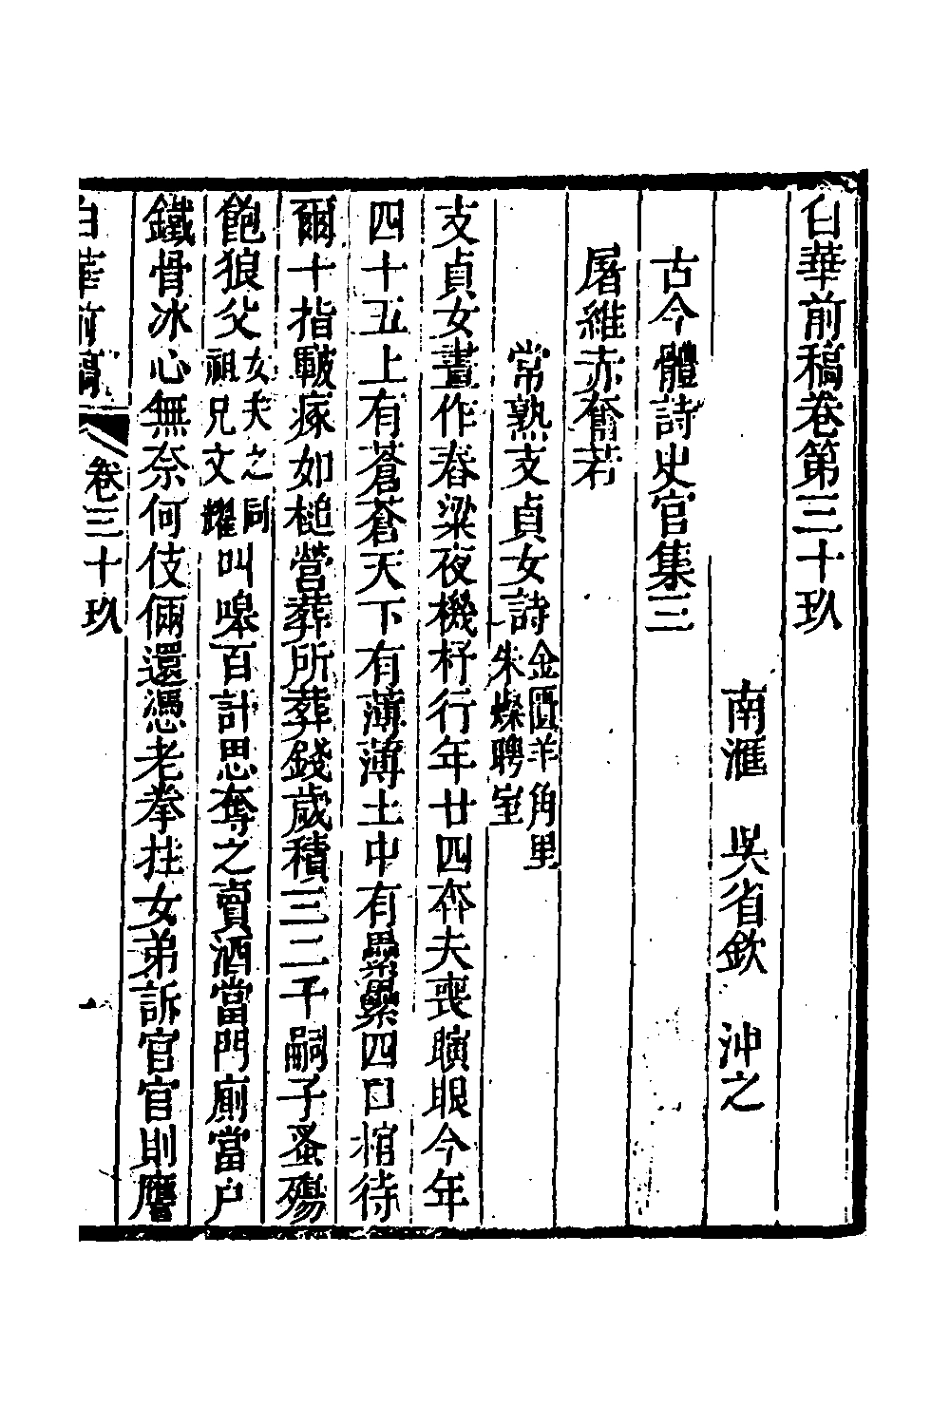 白華前稿卷第三十玖
南滙 吳省欽 沖之
古今體詩史官集三
屠維赤奮若
常熟支貞女詩金匱羊角里朱燦聘室
支貞女晝作舂粱夜機杼行年廿四夲夫喪瞚眼今年
四十五上有蒼蒼天下有薄薄土中有纍纍四口棺待
爾十指皸瘃如槌營葬所葬錢歲積三二千嗣子蚤殤
飽狼父女夫之同祖兄文耀叫嘷百計思奪之賣酒當門廁當户
鐵骨冰心無奈何伎倆還憑老拳拄女弟訴官官則譍
白華前稿 卷三十玖 一